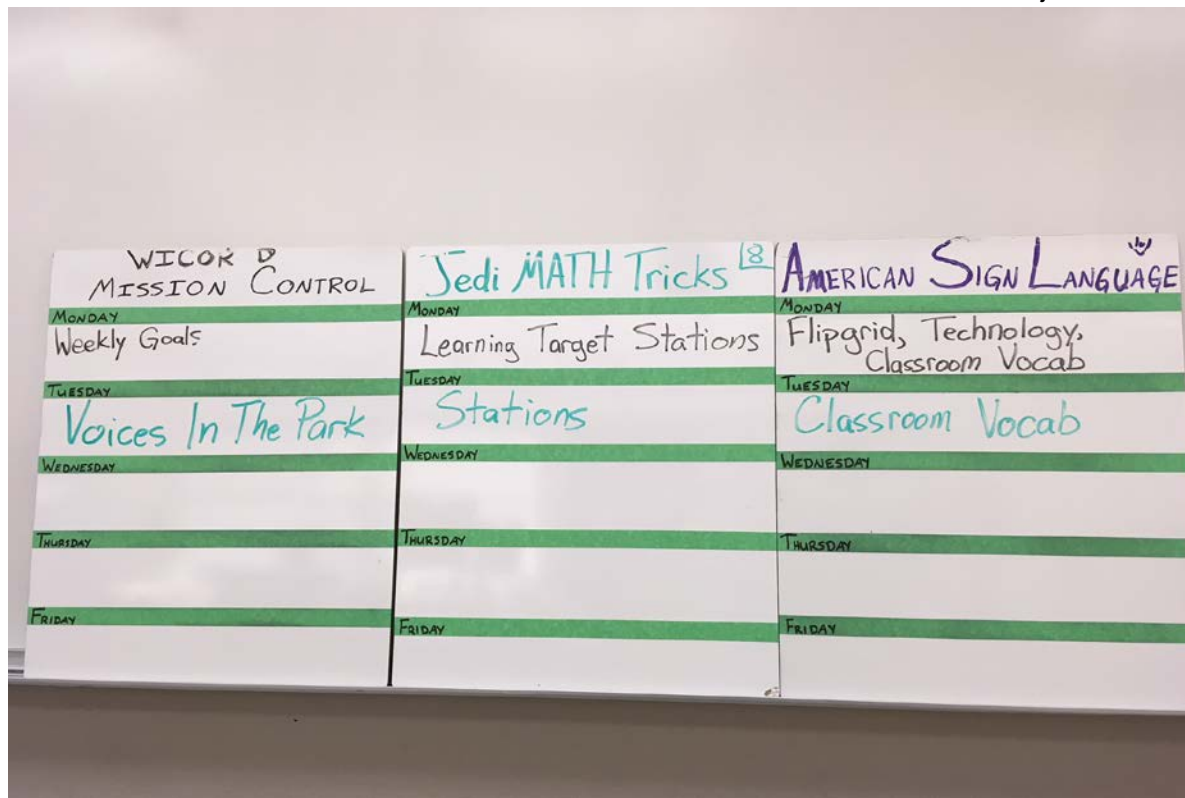 WICOR D
MISSION CONTROL
MONDAY
Weekly Goals
TUESDAY
Voices In The Park
WEDNESDAY
THURSDAY
FRIDAY
Jedi MATH Tricks 8
MONDAY
Learning Target Stations
TUESDAY
Stations
WEDNESDAY
THURSDAY
FRIDAY
AMERICAN SIGN LANGUAGE
MONDAY
Flipgrid, Technology,
Classroom Vocab
TUESDAY
Classroom Vocab
WEDNESDAY
THURSDAY
FRIDAY